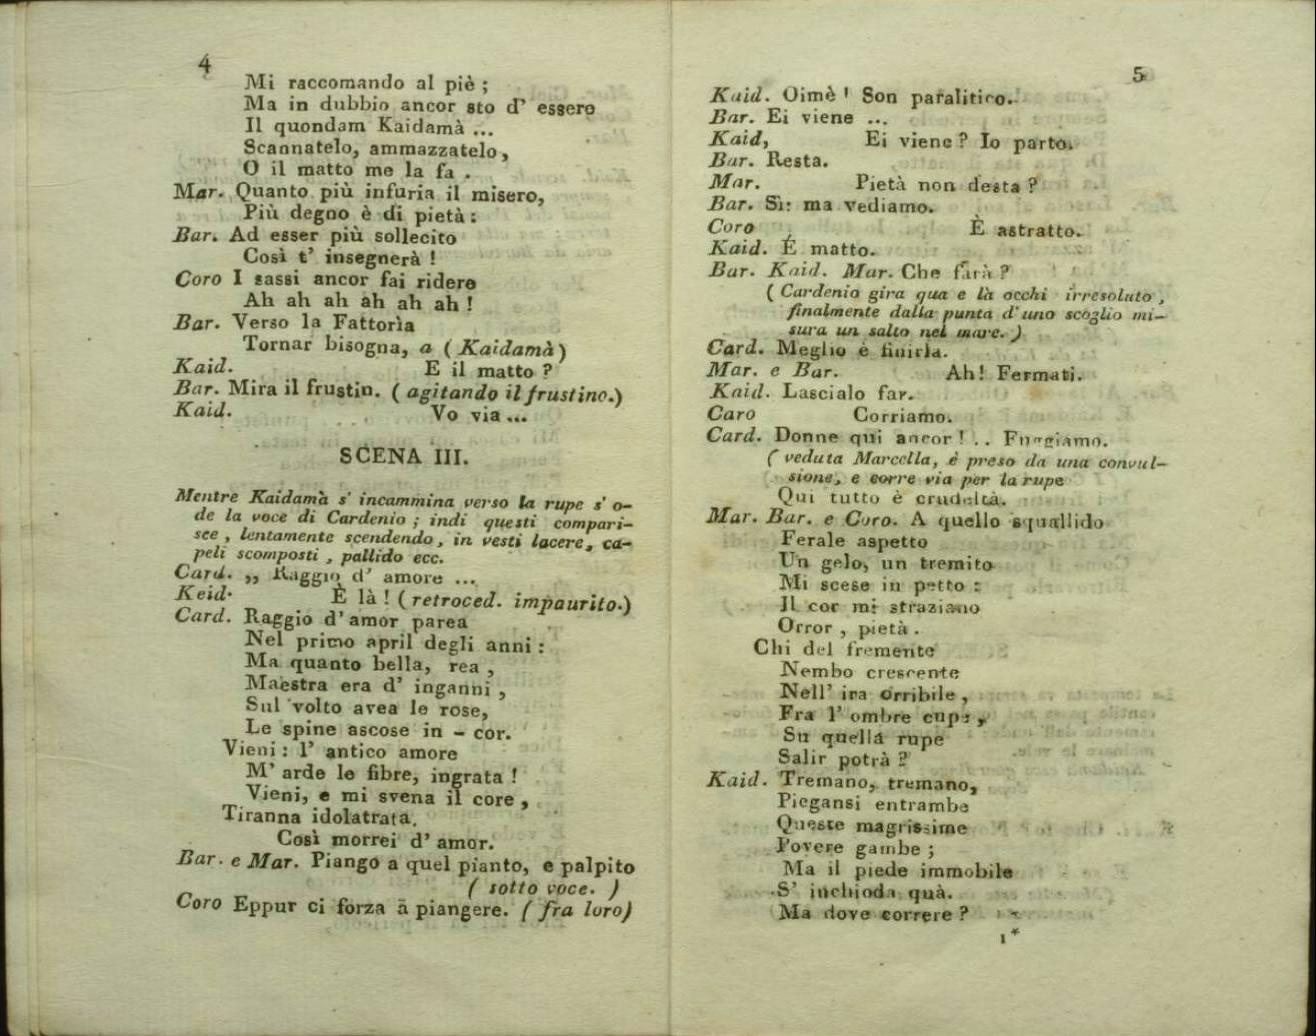 4
Mi raccomando al piè ;
Ma in dubbio ancor sto d' essere
Il quondam Kaidamà ...
Scannatelo, ammazzatelo,
O il matto me la fa .
Mar. Quanto più infuria il misero,
Più degno è di pietà :
Bar. Ad esser più sollecito
Così t' insegnerà !
Coro I sassi ancor fai ridere
Ah ah ah ah ah ah !
Bar. Verso la Fattorìa
Tornar bisogna, a ( Kaidamà )
Kaid. E il matto ?
Bar. Mira il frustin. ( agitando il frustino.)
Kaid. Vo via ...
SCENA III.
Mentre Kaidamà s' incammina verso la rupe s' o-
de la voce di Cardenio ; indi questi compari-
sce , lentamente scendendo, in vesti lacere, ca-
peli scomposti , pallido ecc.
Card. ,, Raggio d' amore ...
Keid. È là ! ( retroced. impaurito.)
Card. Raggio d' amor parea
Nel primo april degli anni :
Ma quanto bella, rea ,
Maestra era d' inganni ,
Sul volto avea le rose,
Le spine ascose in - cor.
Vieni : l' antico amore
M' arde le fibre, ingrata !
Vieni, e mi svena il core ,
Tiranna idolatrata.
Così morrei d' amor.
Bar. e Mar. Piango a quel pianto, e palpito
( sotto voce. )
Coro Eppur ci forza à piangere. ( fra loro)
5
Kaid. Oimè ! Son paralitico.
Bar. Ei viene ...
Kaid, Ei viene ? Io parto.
Bar. Resta.
Mar. Pietà non desta ?
Bar. Sì: ma vediamo.
Coro È astratto.
Kaid. É matto.
Bar. Kaid. Mar. Che farà ?
( Cardenio gira qua e là occhi irresoluto ,
finalmente dalla punta d' uno scoglio mi-
sura un salto nel mare. )
Card. Meglio è finirla.
Mar. e Bar. Ah! Fermati.
Kaid. Lascialo far.
Caro Corriamo.
Card. Donne qui ancor ! . . Fuggiamo.
( veduta Marcella, è preso da una convul-
sione, e corre via per la rupe
Qui tutto è crudeltà.
Mar. Bar. e Coro. A quello squallido
Ferale aspetto
Un gelo, un tremito
Mi scese in petto :
Il cor mi straziano
Orror , pietà .
Chi del fremente
Nembo crescente
Nell' ira orribile ,
Fra l' ombre cupe ,
Su quella rupe
Salir potrà ?
Kaid. Tremano, tremano,
Piegansi entrambe
Queste magrissime
Povere gambe ;
Ma il piede immobile
S' inchioda quà.
Ma dove correre ?
1*